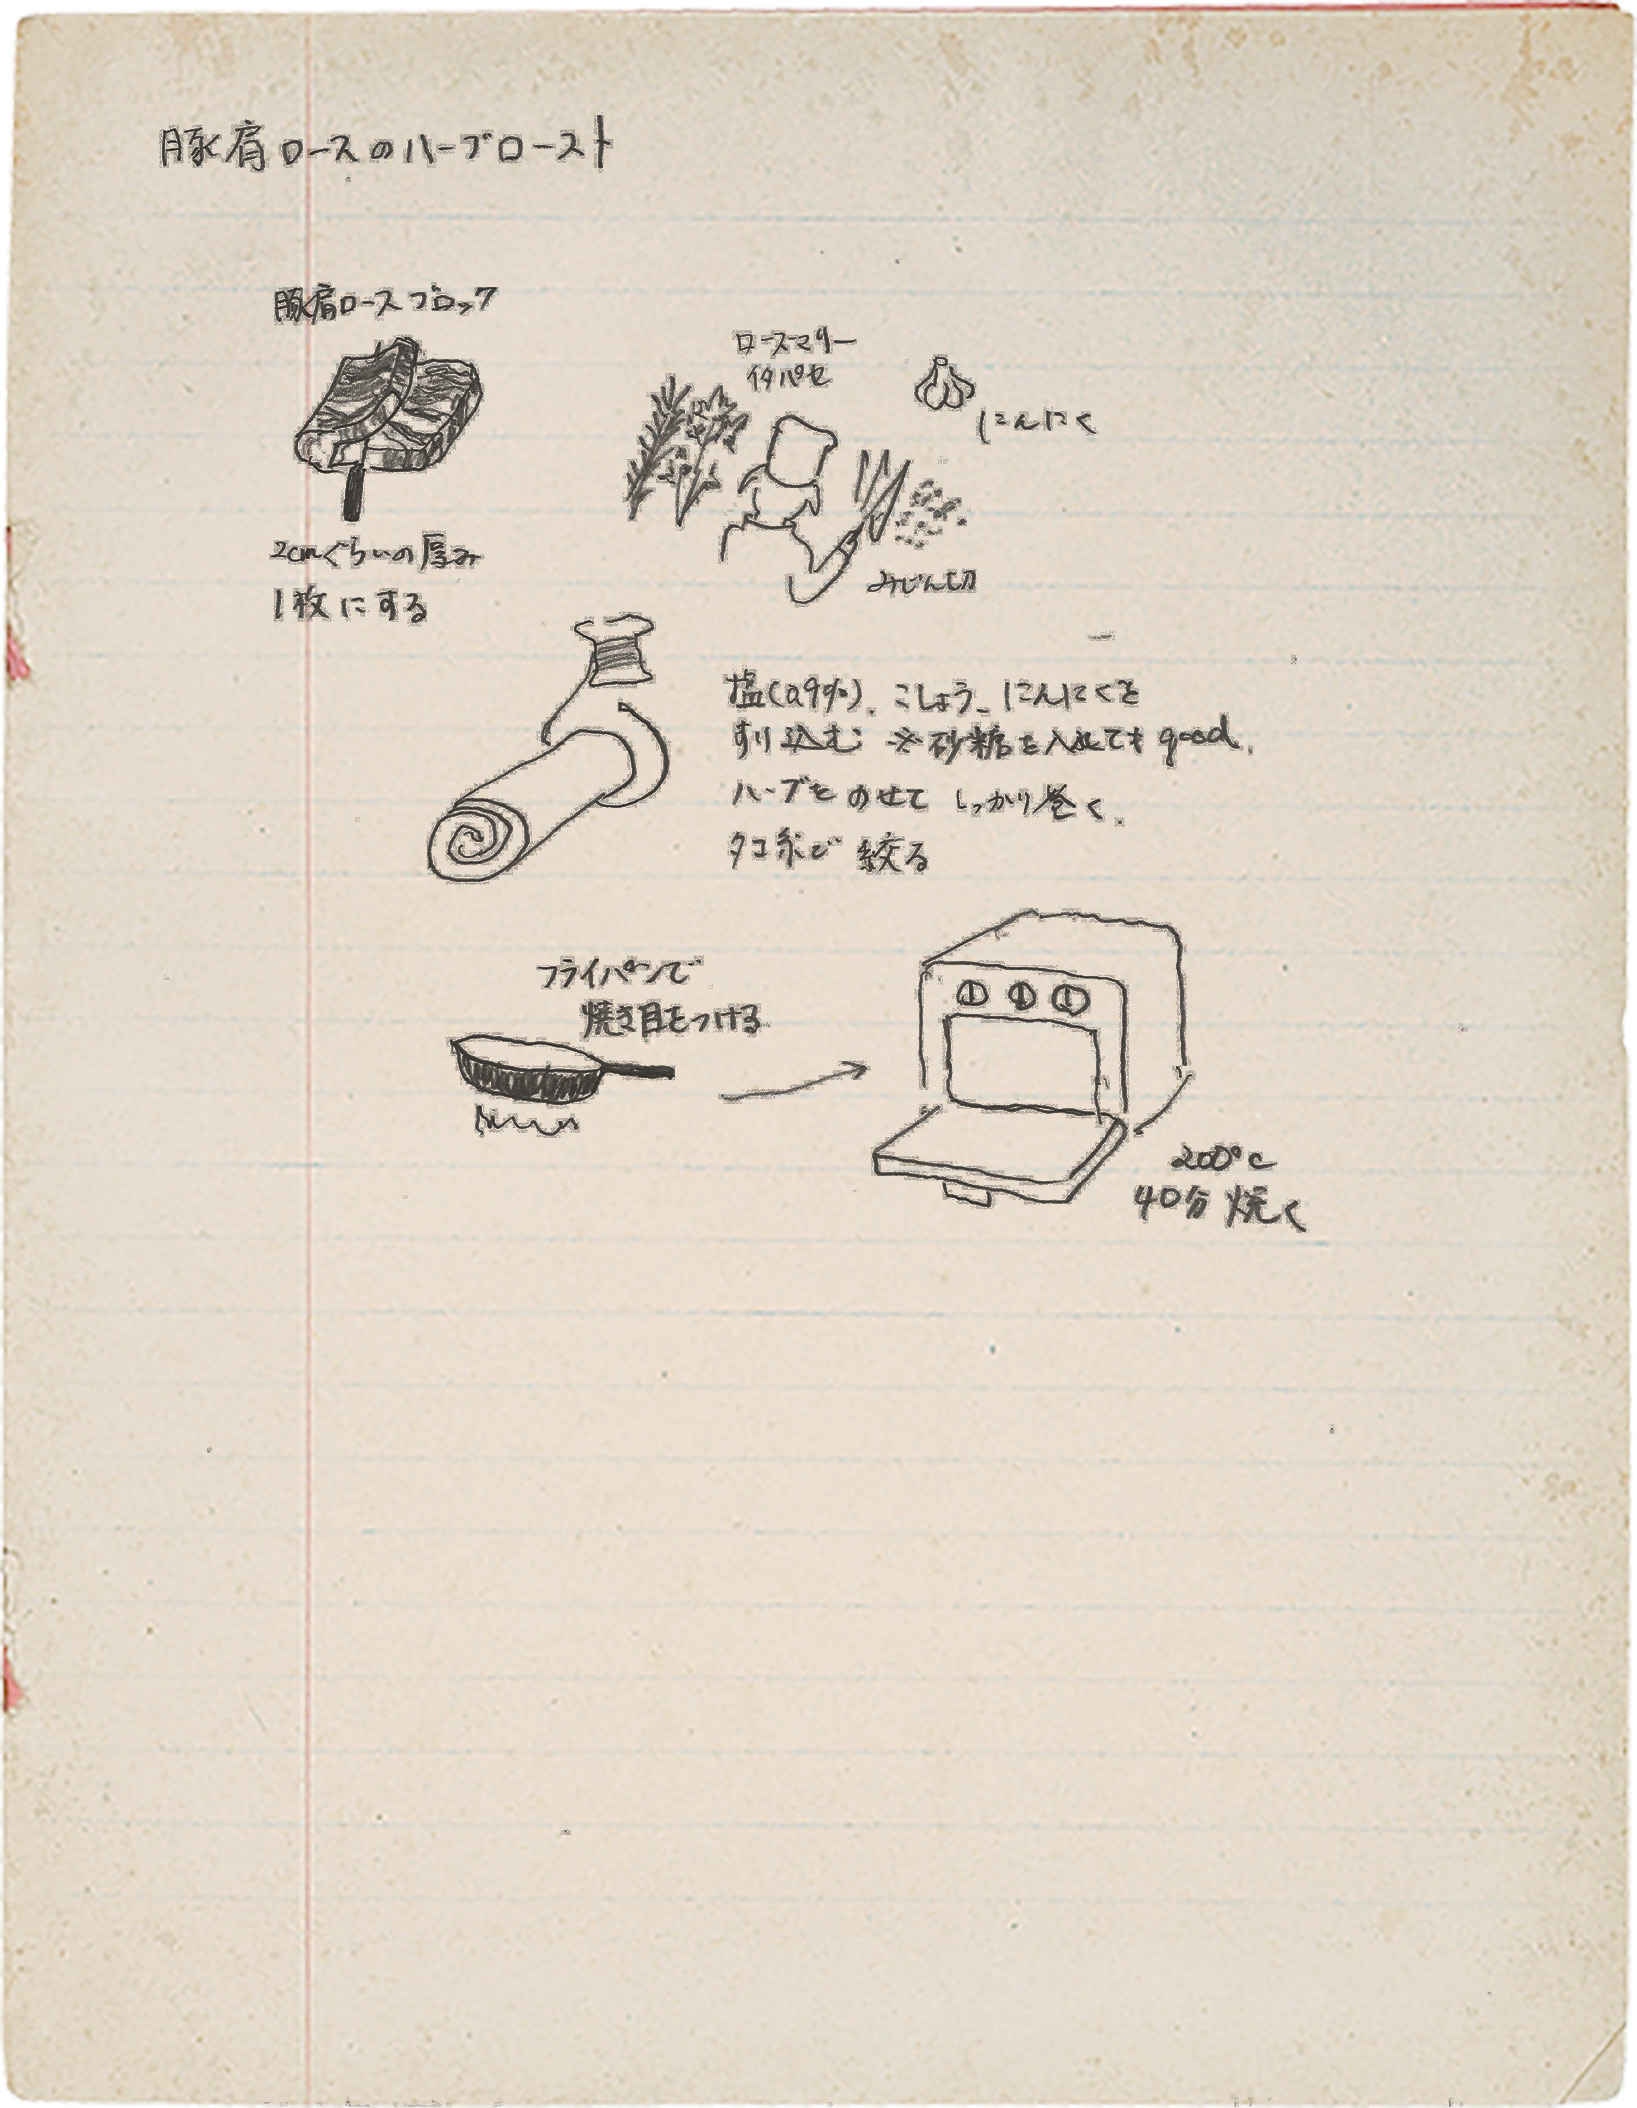 豚肩ロースのハーブロースト
豚肩ロースブロック
2cmぐらいの厚み
1枚にする
ローズマリー
イタパセ
にんにく
みじん切
塩(0.9%)、こしょう、にんにくを
すり込む ※砂糖を入れてもgood.
ハーブをのせて しっかり巻く.
タコ糸で 絞る
フライパンで
焼き目をつける
200℃
40分 焼く